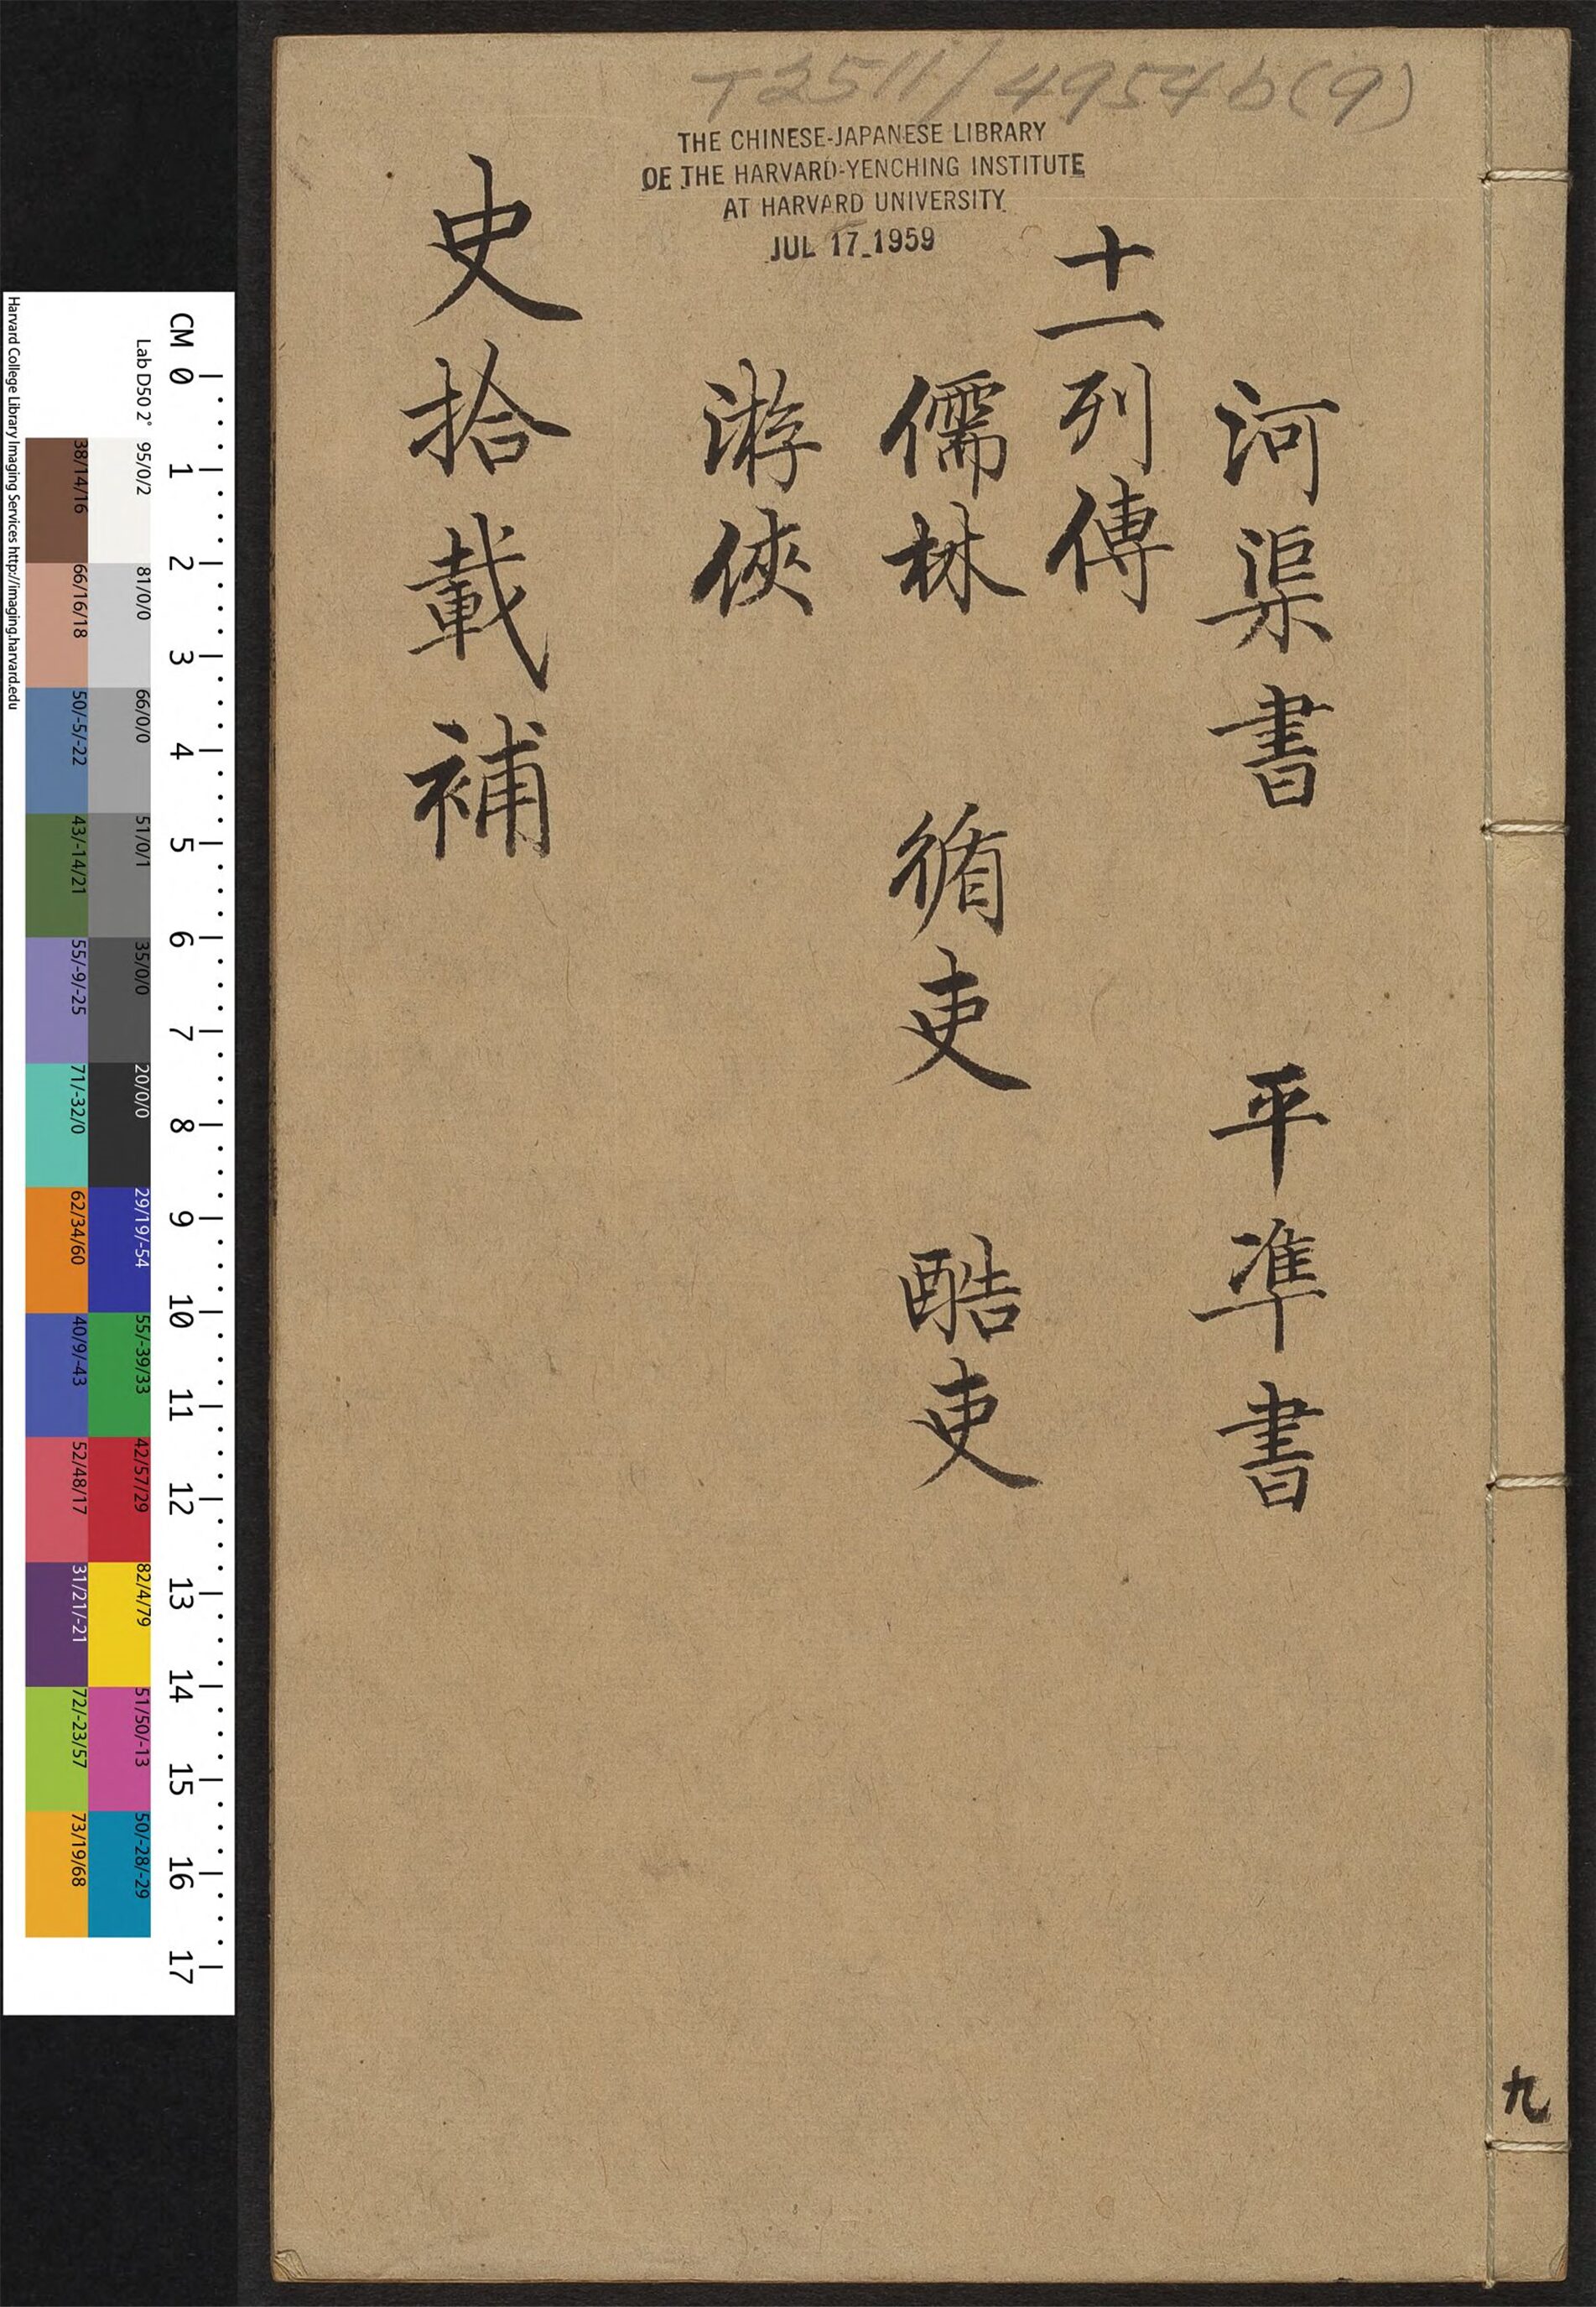 T2511/4954b(9)
THE CHINESE-JAPANESE LIBRARY
OF THE HARVARD-YENCHING INSTITUTE
AT HARVARD UNIVERSITY
JUL 17 1959
河渠書 平準書
十一列傳
儒林 循吏 酷吏
游俠
史拾載補
九
Harvard College Library Imaging Services http://imaging.harvard.edu
Lab D50 2°
CM 0 1 2 3 4 5 6 7 8 9 10 11 12 13 14 15 16 17
95/0/2 81/0/0 66/0/0 51/0/1 35/0/0 20/0/0 29/19/-54 55/-39/33 42/57/29 82/4/79 51/50/-13 50/-28/-29
38/14/16 66/16/18 50/-5/-22 43/-14/21 55/-9/-25 71/-32/0 62/34/60 40/9/-43 52/48/17 31/21/-21 72/-23/57 73/19/68